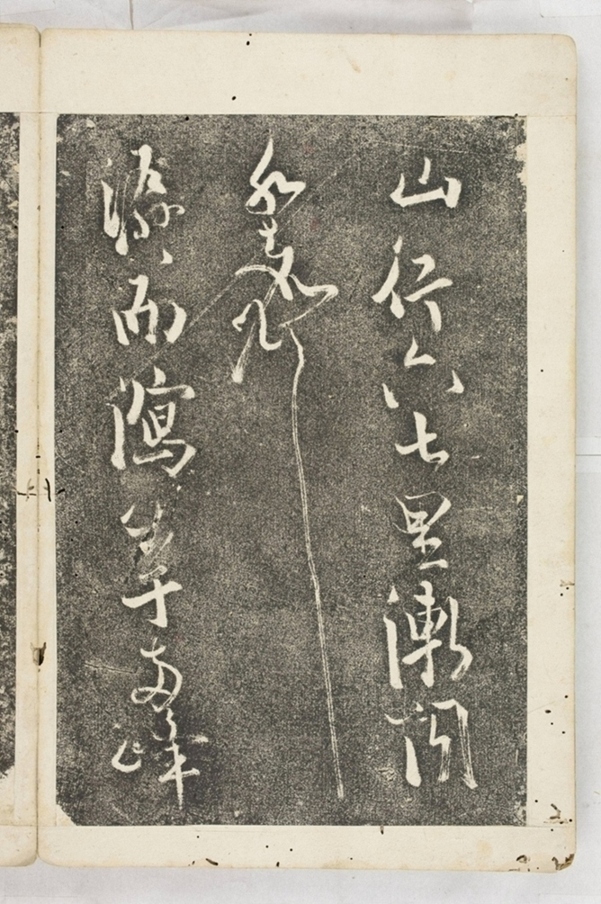 山行六七里漸聞
水聲
潺〻而瀉出于兩峰